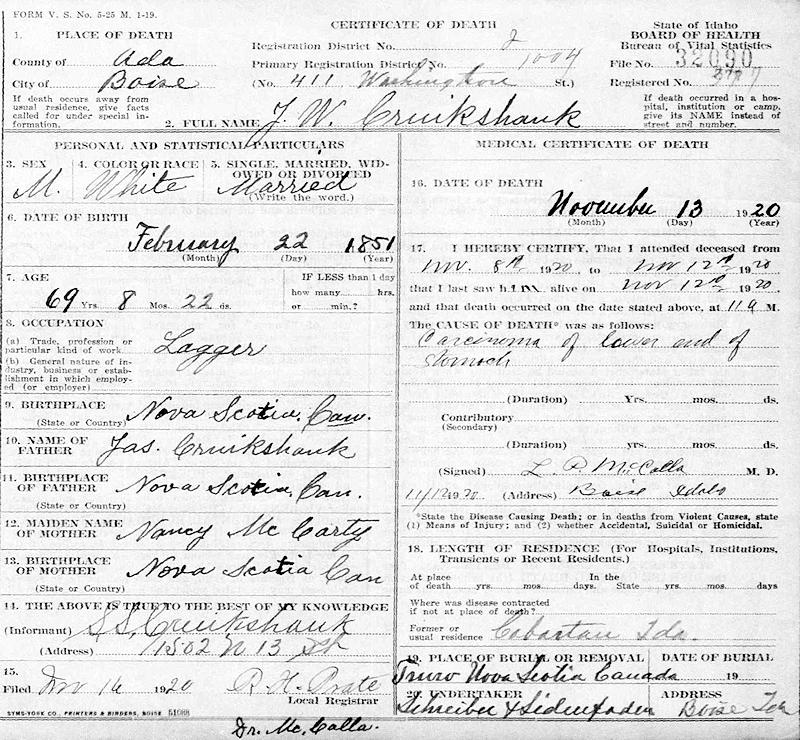 FORM V. S. No. 5-25 M. 1-19.
CERTIFICATE OF DEATH
State of Idaho
BOARD OF HEALTH
Bureau of Vital Statistics
1. PLACE OF DEATH
County of Ada
City of Boise
Registration District No. 2
Primary Registration District No. 1004
(No. 411 Washington St.)
File No. 32090
Registered No.
If death occurs away from usual residence, give facts called for under special information.
2. FULL NAME J. W. Cruikshank
If death occurred in a hospital, institution or camp, give its NAME instead of street and number.
PERSONAL AND STATISTICAL PARTICULARS
3. SEX
M.
4. COLOR OR RACE
White
5. SINGLE, MARRIED, WIDOWED OR DIVORCED
Married
(Write the word.)
6. DATE OF BIRTH
February 22 1851
(Month) (Day) (Year)
7. AGE
69 Yrs. 8 Mos. 22 ds.
IF LESS than 1 day
how many hrs.
or min.?
8. OCCUPATION
(a) Trade, profession or particular kind of work
Logger
(b) General nature of industry, business or establishment in which employed (or employer)
9. BIRTHPLACE
(State or Country)
Nova Scotia. Can.
10. NAME OF FATHER
Jas. Cruikshank
11. BIRTHPLACE OF FATHER
(State or Country)
Nova Scotia, Can.
12. MAIDEN NAME OF MOTHER
Nancy McCarty
13. BIRTHPLACE OF MOTHER
(State or Country)
Nova Scotia Can
14. THE ABOVE IS TRUE TO THE BEST OF MY KNOWLEDGE
(Informant) S. S. Cruikshank
(Address) 1502 N 13 St
15.
Filed Nov 16 1920
Local Registrar
SYMS-YORK CO., PRINTERS & BINDERS, BOISE 51088
MEDICAL CERTIFICATE OF DEATH
16. DATE OF DEATH
November 13 1920
(Month) (Day) (Year)
17. I HEREBY CERTIFY, That I attended deceased from
Nov. 8th 1920 to Nov 12th 1920
that I last saw him alive on Nov 12th 1920.
and that death occurred on the date stated above, at M.
The CAUSE OF DEATH* was as follows:
Carcinoma of lower end of
stomach
(Duration) Yrs. mos. ds.
Contributory
(Secondary)
(Duration) Yrs. mos. ds.
(Signed) L. P. McCalla M. D.
1920 (Address) Boise Idaho
*State the Disease Causing Death; or in deaths from Violent Causes, state (1) Means of Injury; and (2) whether Accidental, Suicidal or Homicidal.
18. LENGTH OF RESIDENCE (For Hospitals, Institutions, Transients or Recent Residents.)
At place of death yrs. mos. days. In the State yrs. mos. days
Where was disease contracted if not at place of death?
Former or usual residence Cabartan Ida.
19. PLACE OF BURIAL OR REMOVAL
Truro Nova Scotia Canada
DATE OF BURIAL
19
20. UNDERTAKER
Schreiber & Sidenfaden
ADDRESS
Boise Ida
Dr. McCalla.